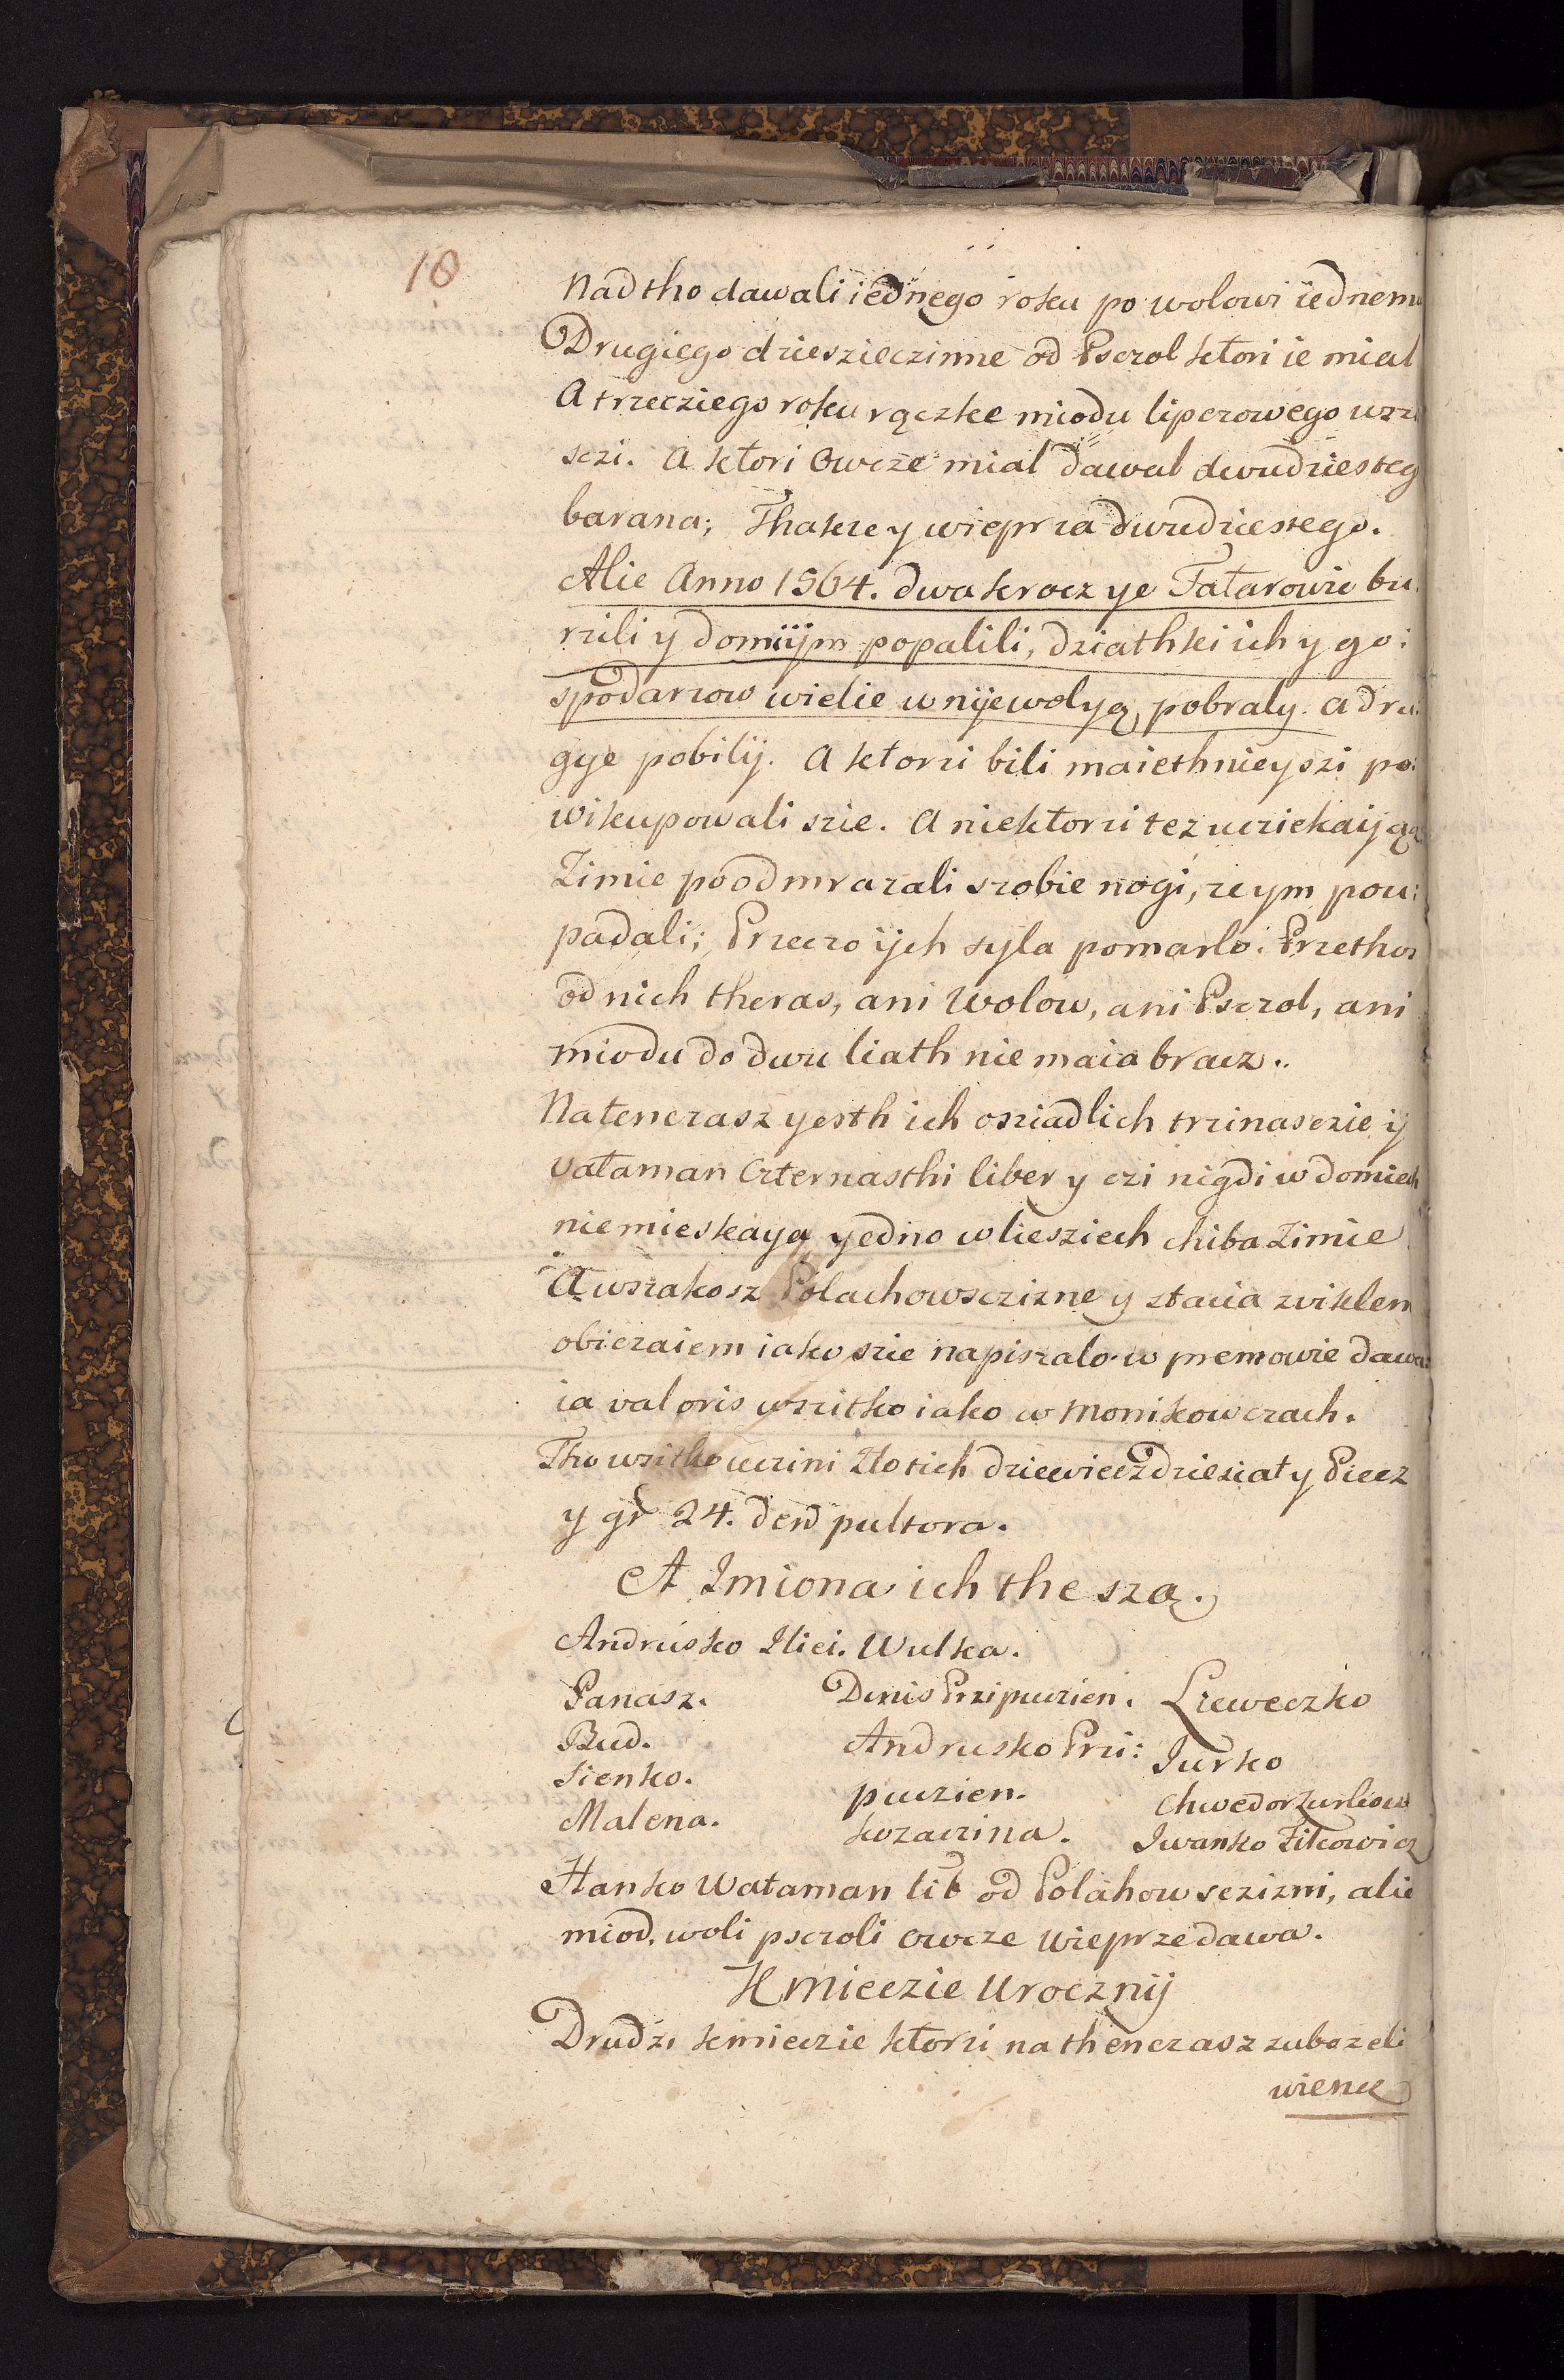 18
Nadtho dawali iednego roku po wolowi iednemu
Drugiego dziesziecznine od Psczol ktori ie mial
A trzecziego roku rączke miodu lipczowego wzz
sczi. A ktori Owcze mial dawal dwudziesteg
barana; Thakze y wieprza dwudziestego.
Alie Anno 1564. dwa krocz ye Tatarowie bu:
rzili y domiijm popalili, dziathki ich y go:
spodarzow wielie w niiewolyą pobraly. a dru:
gye pobilij. A ktorzi bili maiethnieyszi po:
wikupowali szie. A niektorzi tez ucziekaiją
Zimie poodmrazali szobie nogi, ze ym pou:
padali; Przeczo ijch syla pomarlo. Przetho
od nich theras, ani Wolow, ani Psczol, ani
miodu do dwu liath nie maia bracz.
Natenczasz yesth ich osziadlich trzinasczie ij
Vataman Czternasthi liber y czi nigdi w domiech
niemieskayą yedno w liesziech chiba Zimie
A wszakosz Polachowsczizne y stacia zwiklem
obiczaiem iako szie napiszalo w premowie dawa:
ia valoris wszitko iako w Monikowczach.
Tho wszitko uczini Zlotich dziewieczdziesiat y Piecz
y gr 24. den pultora.
A Imiona ich the szą.
Andrusko Iliei. Wulka.
Panasz. Denis Przipuczien. Lzeweczko
Bud. Andrusko Przi: Jurko
Sienko. puczien. Chwedor Zurkow
Malena. kozaczina. Iwanko Zilkowicz
Hanko Wataman lib od Polahowsczizni, alie
miod, woli psczoli owcze wieprze dawa.
Kmieczie Urocznij
Drudzi kmieczie ktorzi na thenczasz zubozeli
wiencz